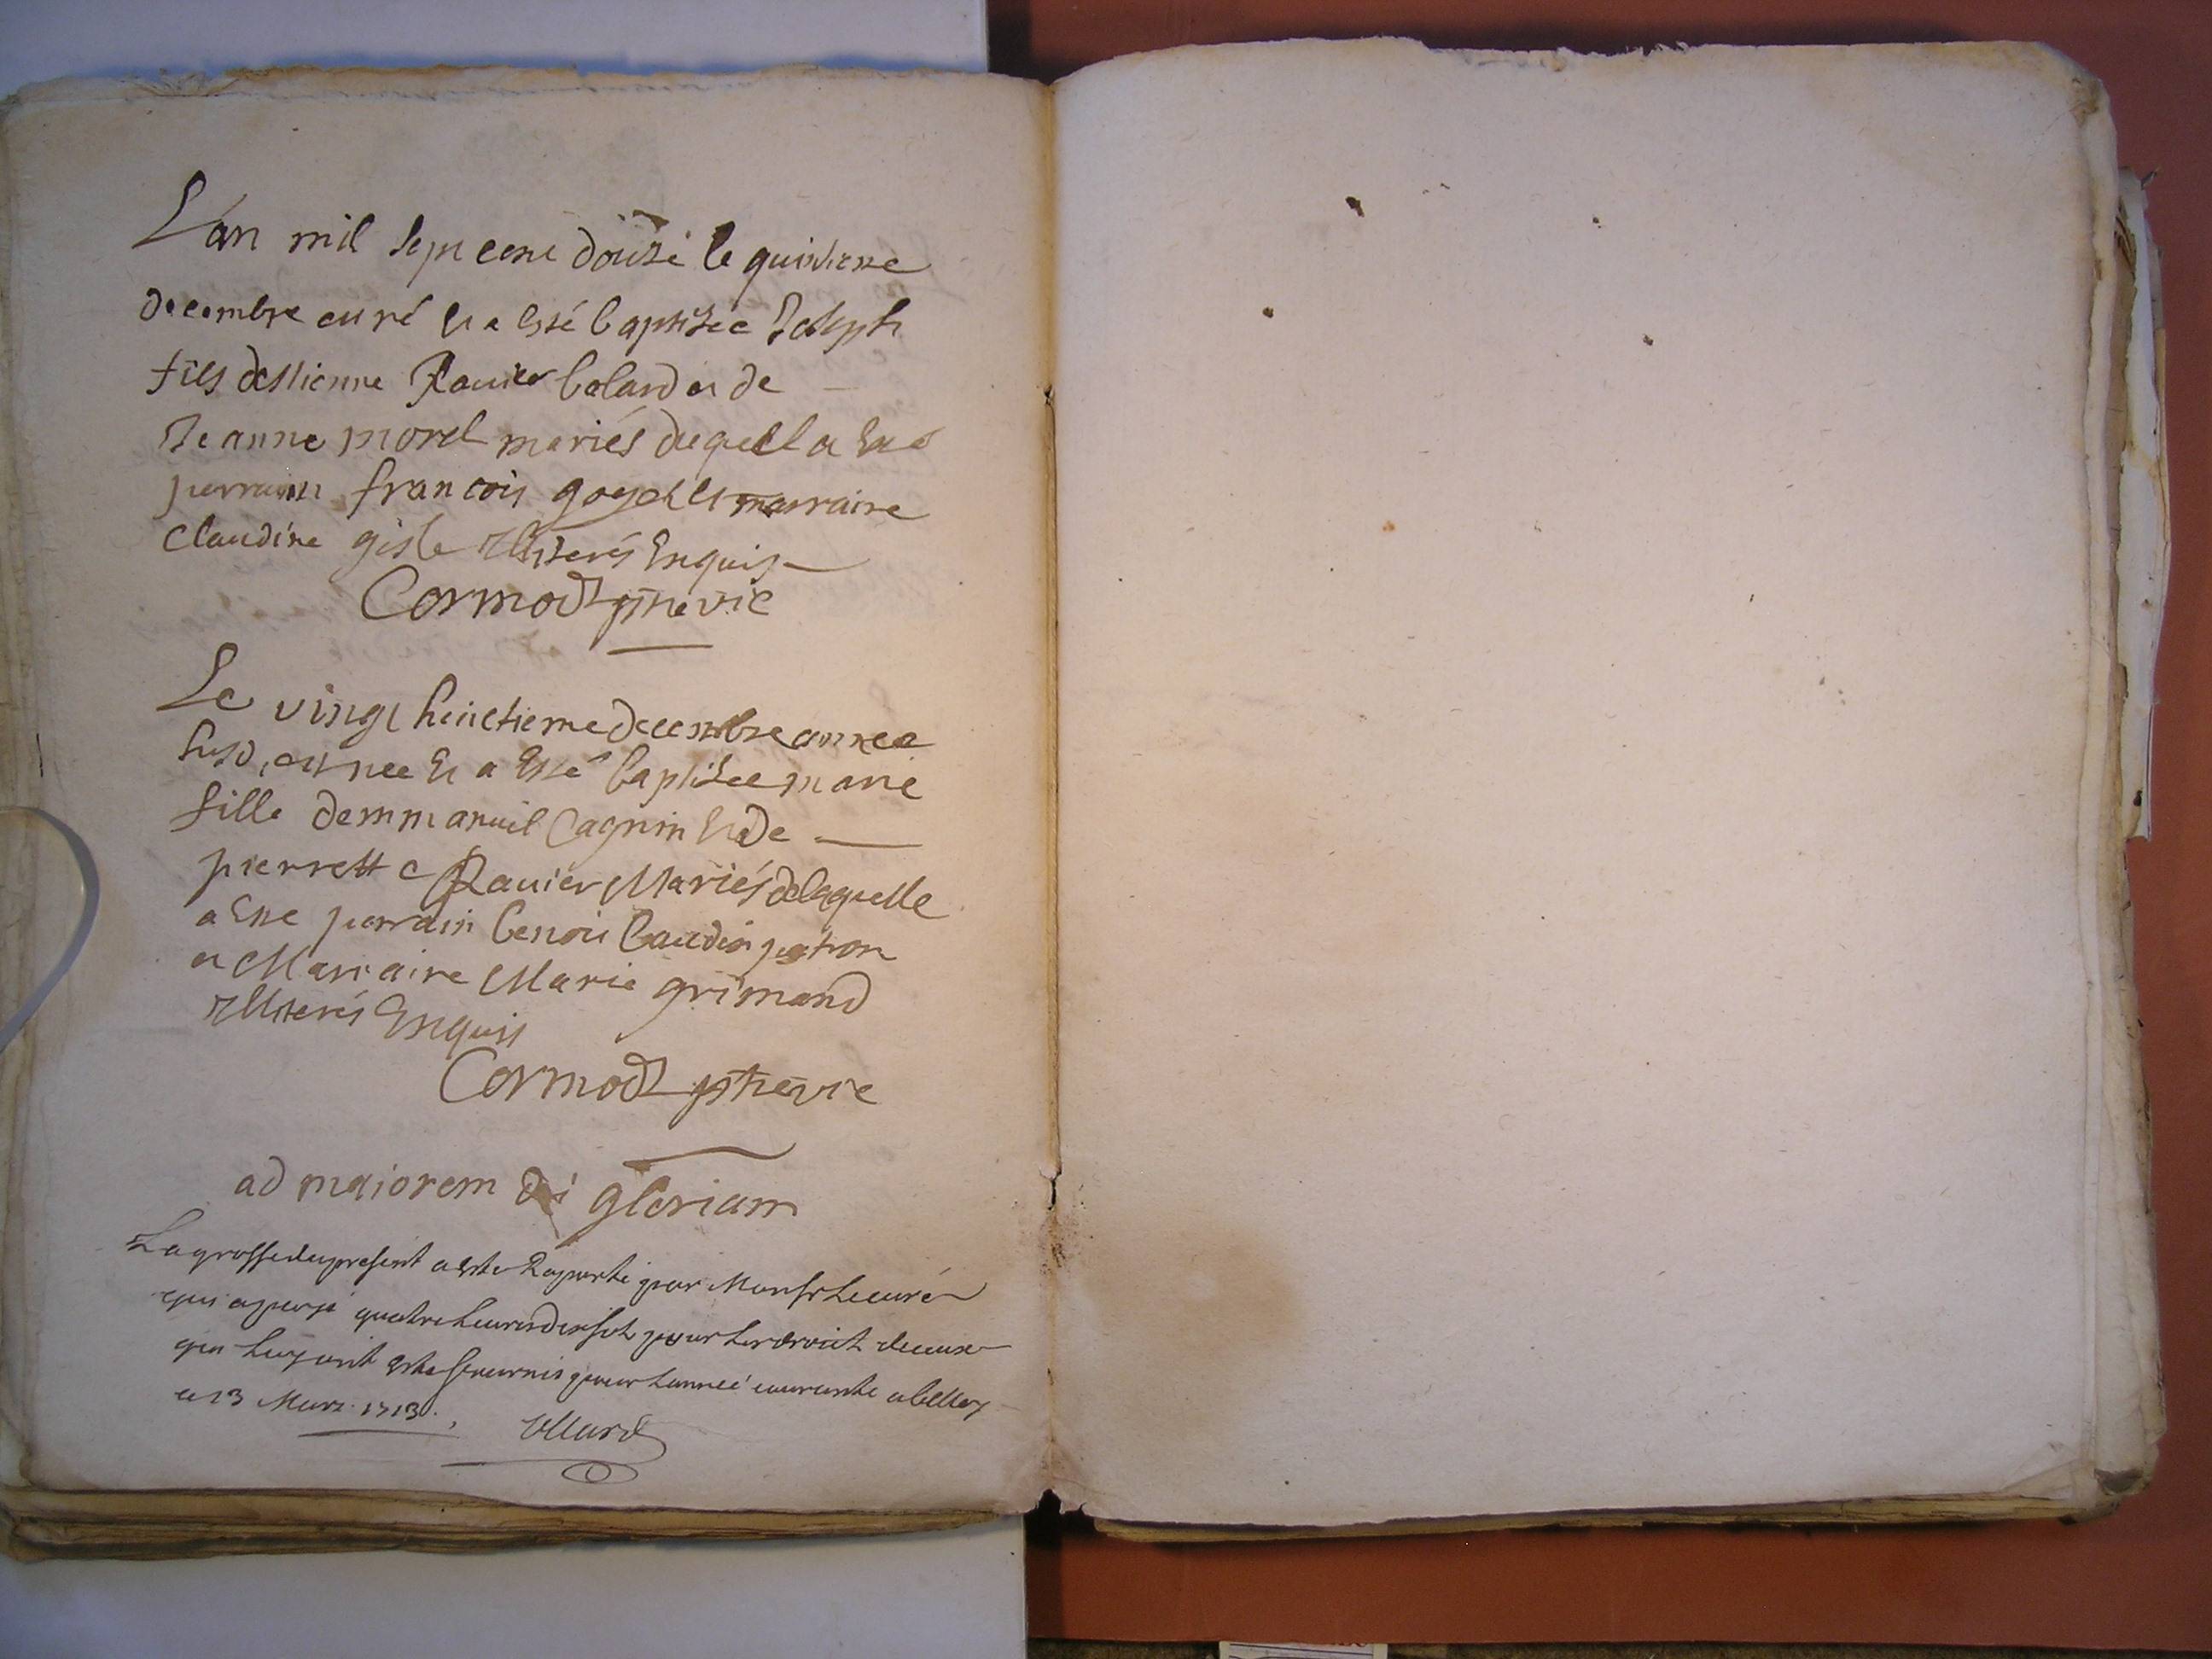 L'an mil sept cent douze le quinzieme
decembre est né et a esté baptizee Joseph
fils destienne Ravier balard et de
Jeanne morel mariés duquel a esté
parrain francois goyet et marraine
Claudine gisle Illiterés Enquis
Cormod ptre vic
Le vingt huictieme decembre annee
susd. est nee et a esté baptizee marie
fille demmanuil Cagnin et de
pierrette Ravier Mariés de laquelle
a este parrain benoit baudin patron
et Marraine Marie grimand
Illiterés Enquis
Cormod ptre vic
ad maiorem dei gloriam
La grosse du present a este Raporté par Monsr Le curé
qui a payé quatre Livres dix sols pour Les droict deceux
qui Luy ont este fournis pour Lannée courante a belley
ce 13 Mars 1713.